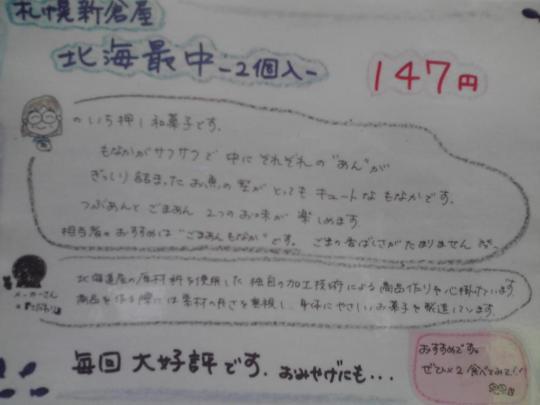 札幌新倉屋
北海最中-2個入-
147円
のいち押し和菓子です。
もなかがサクサクで 中にそれぞれの"あん"が
ぎっしり詰まった お魚の型が とっても キュートな もなかです。
つぶあんと ごまあん 2つのお味が 楽しめます
担当者のおすすめは"ごまあんもなか"です。 ごまの香ばしさがたまりません
メーカーさん
のこだわり
北海道産の原材料を使用した 独自の加工技術による 商品作りを心掛けています
商品を作る際には素材の良さを重視し、身体にやさしいお菓子を製造しています。
毎回 大好評です。おみやげにも...
おすすめです。
ぜひ×2 食べてみて